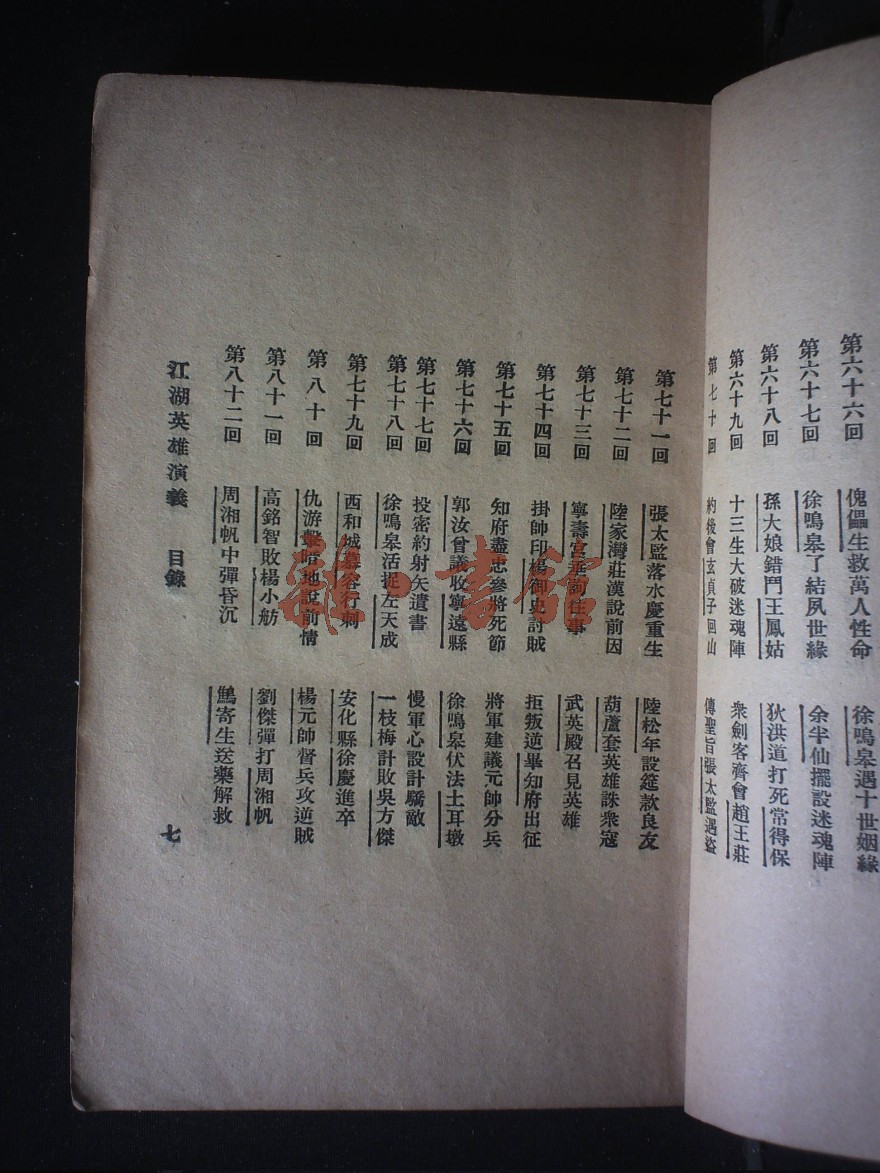 第六十六回 傀儡生救萬人性命 徐鳴皋遇十世姻緣
第六十七回 徐鳴皋了結夙世緣 余半仙擺設迷魂陣
第六十八回 孫大娘錯鬥王鳳姑 狄洪道打死常得保
第六十九回 十三生大破迷魂陣 衆劍客齊會趙王莊
第七十回 約後會玄貞子回山 傳聖旨張太監遇盜
第七十一回 張太監落水慶重生 陸松年設筵款良友
第七十二回 陸家灣莊漢說前因 葫蘆套英雄誅衆寇
第七十三回 寧壽宮垂詢往事 武英殿召見英雄
第七十四回 掛帥印楊御史討賊 拒叛逆畢知府出征
第七十五回 知府盡忠參將死節 將軍建議元帥分兵
第七十六回 郭汝曾議收寧遠縣 徐鳴皋伏法土耳墩
第七十七回 投密約射矢遺書 慢軍心設計驕敵
第七十八回 徐鳴皋活捉左天成 一枝梅計敗吳方傑
第七十九回 西和城慕容行刺 安化縣徐慶進卒
第八十回 仇游擊暗地說前情 楊元帥督兵攻逆賊
第八十一回 高銘智敗楊小舫 劉傑彈打周湘帆
第八十二回 周湘帆中彈昏沉 鷦寄生送藥解救
江湖英雄演義 目錄 七
雜·書館